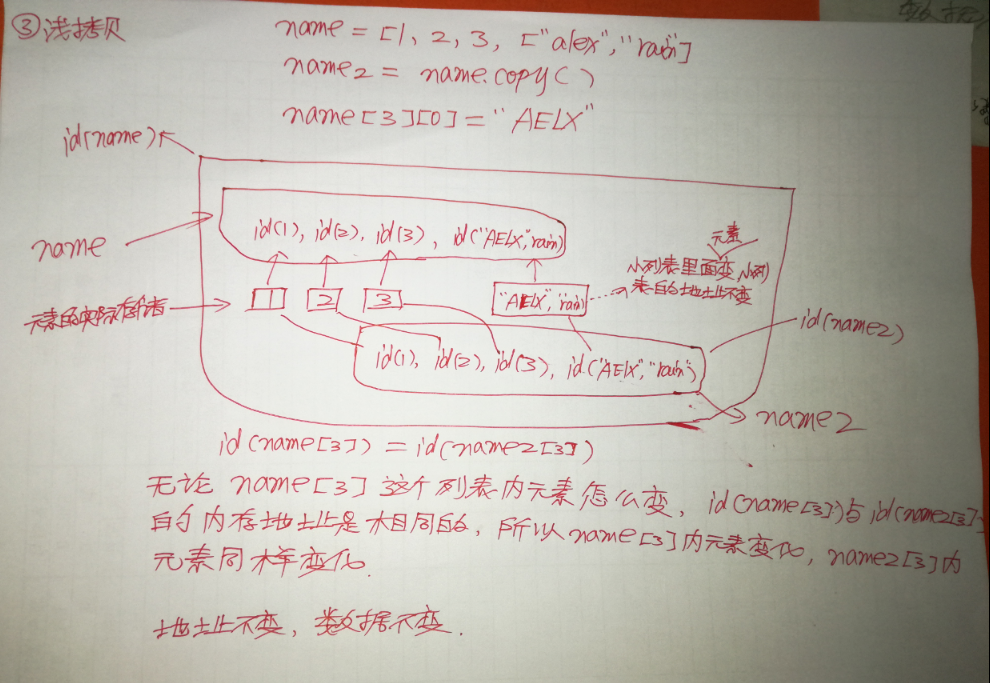 ③浅拷贝
name = [1, 2, 3, ["alex","rain"]
name2 = name.copy()
name[3][0]="AELX"
id(name)
name
id(1), id(2), id(3), id("AELX","rain)
元素
小列表里面变,小列
表的地址不变
元素的实际存储者
1
2
3
"AELX","rain
id(name2)
id(1), id(2), id(3), id("AELX","rain")
name2
id(name[3]) = id(name2[3])
无论 name[3] 这个列表内元素怎么变, id(name[3])与id(name2[3]
的内存地址是相同的, 所以name[3]内元素变化, name2[3]内
元素同样变化.
地址不变, 数据不变.